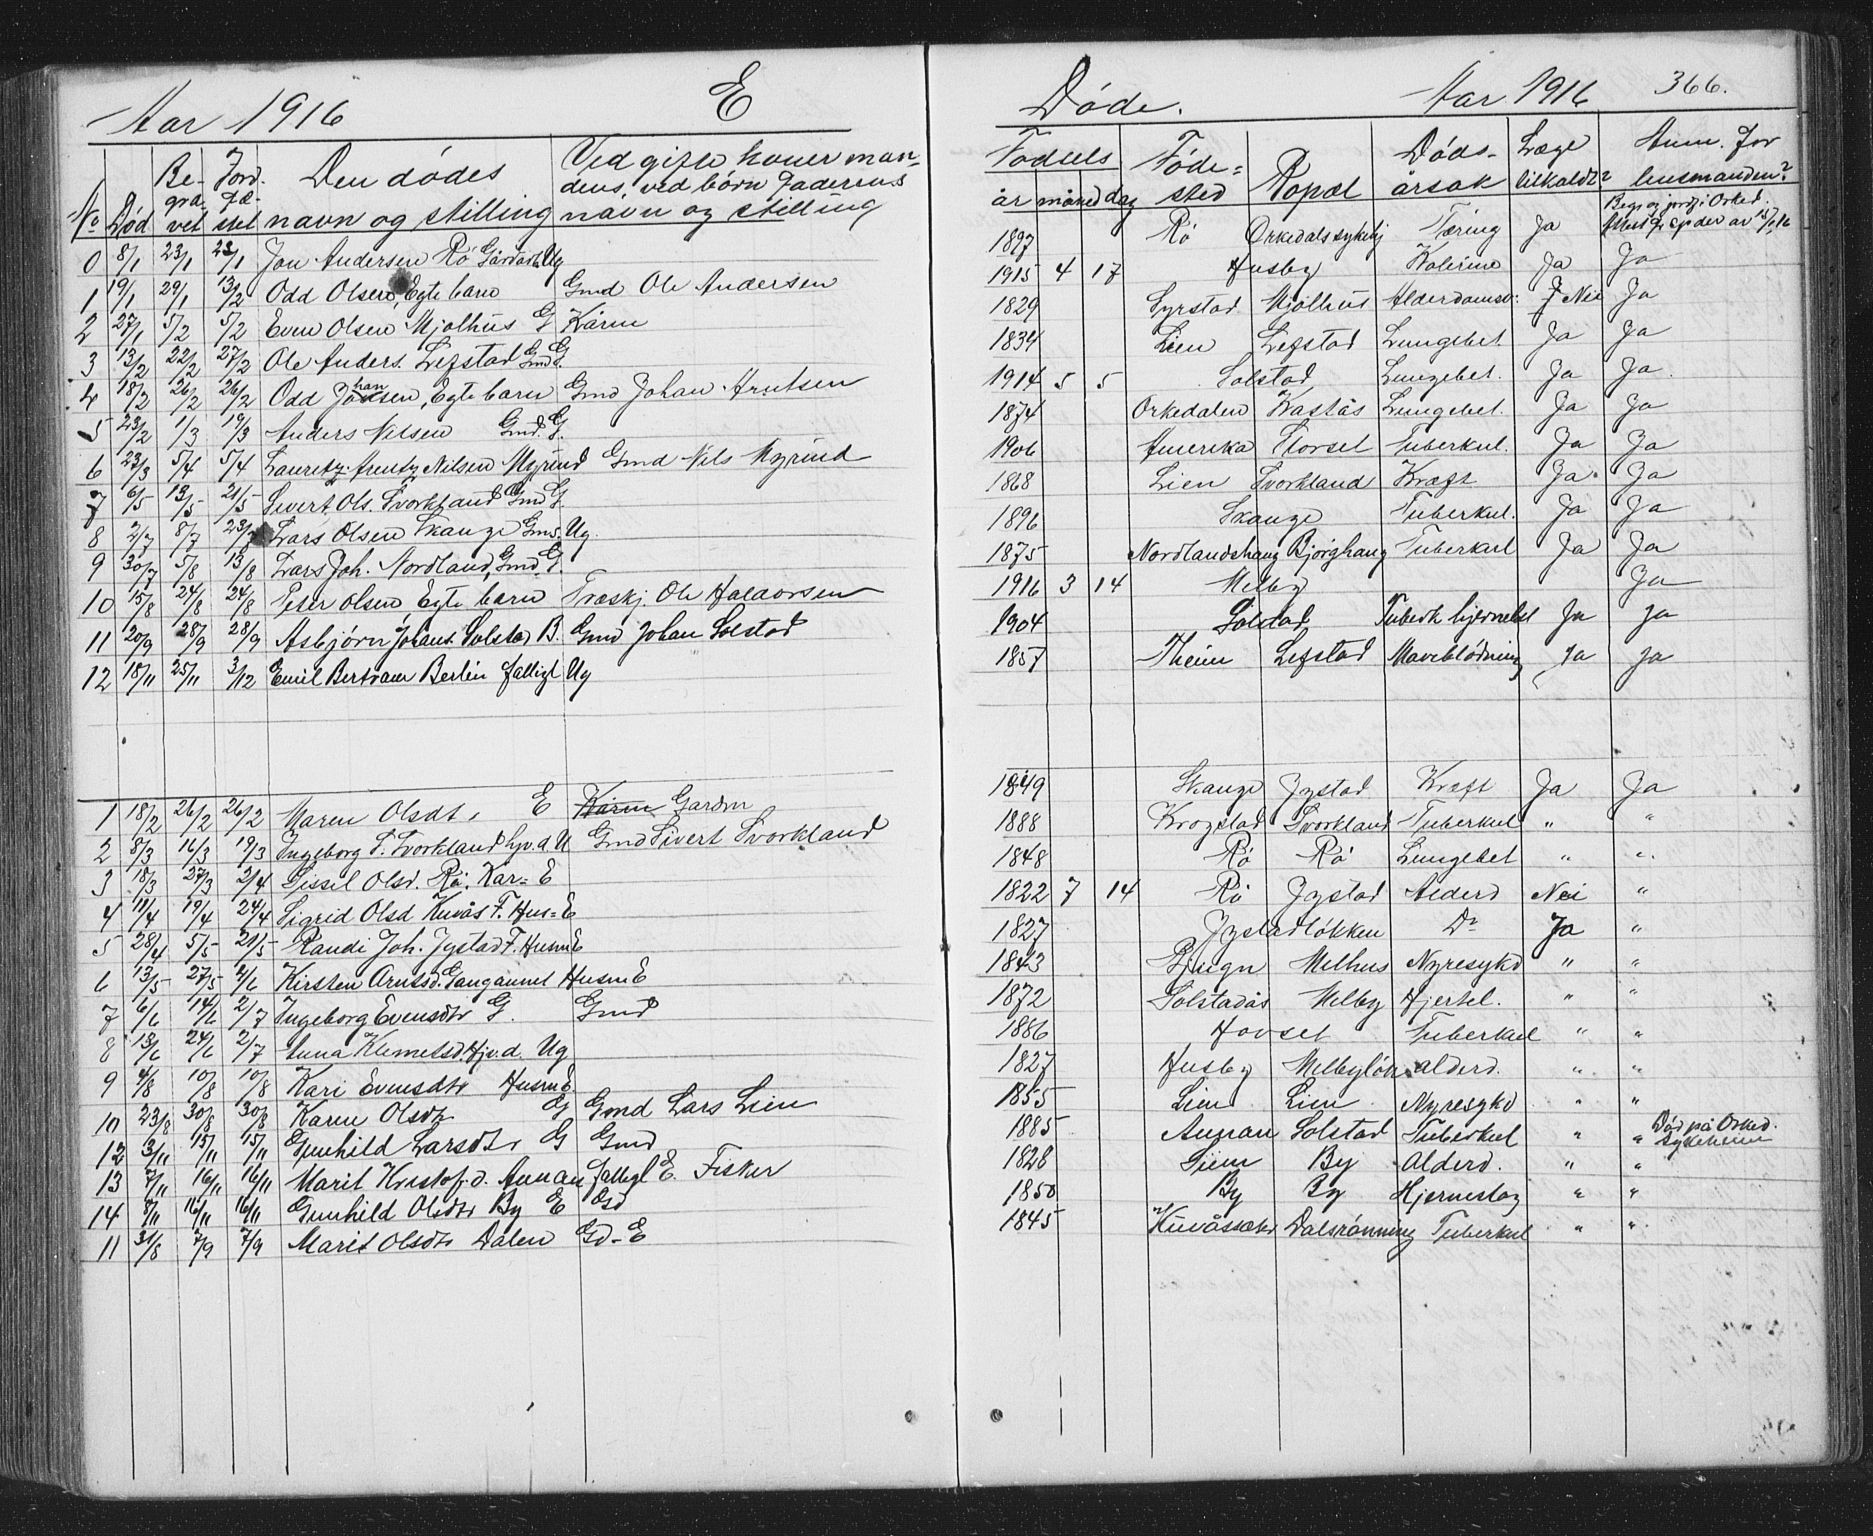 Aar 1916 E Døde. Aar 1916 366.
No Død Begravet Jordfæstet Den dødes navn og stilling Ved gifte koner mandens, ved børn Faderens navn og stilling Fødsels år måned dag Fødested Bopæl Dødsårsak Læge tilkaldt? Anm. for lensmanden?
0 8/1 23/1 23/1 Jon Andersen Rø Ug 1897 Rø Orkedals sykehj Tæring Ja
1 19/1 29/1 13/2 Odd Olsen, Egte barn Gmd Ole Andersen 1915 4 17 Husby Kolerine Ja Ja
2 27/1 5/2 5/2 Even Olsen Mjølhus G Kårm 1829 Syrstad Mjølhus Alderdomssv: Nei Ja
3 13/2 22/2 27/2 Ole Anders. Lefstad Gmd G. 1834 Lien Lefstad Lungebet. Ja Ja
4 18/2 26/2 26/2 Odd Johansen, Egte barn Gmd Johan Arntsen 1914 5 5 Solstad Lungebet. Ja Ja.
5 23/2 1/3 19/3 Anders Nilsen Gmd. G. 1874 Orkedalen Kastås Lungebet. Ja Ja
6 23/3 5/4 5/4 Lauritz Arentz Nilsen Myrind Gmd Nils Myrind 1906 Amerika Storset Tuberkul. Ja Ja
7 6/5 13/5 21/5 Sivert Ols. Svorkland Gmd G. 1868 Lien Svorkland Kræft Ja Ja
8 2/7 8/7 23/7 Lars Olsen Skauge Gms. Ug. 1896 Skauge Tuberkul. Ja Ja
9 30/7 5/8 13/8 Lars Joh. Nordland, Gmd. G. 1875 Nordlandshaug Bjørghaug Tuberkul Ja Ja
10 15/8 24/8 24/8 Peter Olsen, Egte barn Træskj. Ole Haldorsen 1916 3 14 Melby Ja
11 20/9 28/9 28/9 Asbjørn Johans. Solstad B. Gmd Johan Solstad 1904 Solstad Tuberk hjernebet Ja Ja
12 18/11 25/11 3/12 Emil Bertram Berlin fattigl Ug 1857 Theim Lefstad Maveblødning Ja Ja
1 18/2 26/2 26/2 Maren Olsdt. E Kårm Gardm 1849 Skauge Jystad Kræft Ja Ja
2 8/3 16/3 19/3 Ingeborg S. Svorkland hjv. d. U Gmd Sivert Svorkland 1888 Krogstad Svorkland Tuberkul " "
3 18/3 27/3 2/4 Sissel Olsd. Rø. Kar= E 1848 Rø Rø Lungebet " "
4 11/4 19/4 24/4 Sigrid Olsd Kuvås F. Hus= E 1822 7 14 Rø Jystad Alderd Nei "
5 28/4 5/5 21/5 Randi Joh. Jystad F. Husm E 1827 Jystadløkken Do Ja "
6 13/5 27/5 4/6 Kirsten Arntsd. Husm E 1843 Bjugn Melhus Nyresykd " "
7 6/6 14/6 2/7 Ingeborg Evensdtr G. Gmd 1872 Solstadås Melby Hjertel. " "
8 13/6 24/6 2/7 Anna Klemetsd. Hjv. d. Ug 1886 Hovset Tuberkul " "
9 4/8 10/8 10/8 Kari Evensdtr Husm E. 1827 Husby Melbyløk alderd. " "
10 23/8 30/8 30/8 Karen Olsdtr G Gmd Lars Lien 1855 Lien Lien Nyresykd " "
12 3/11 15/11 15/11 Gunhild Larsdt. G Gmd 1885 Aunan Solstad Tuberkul " " Død på Orked. sykeheim
13 7/11 16/11 16/11 Marit Kristof. d. Aunan fattigl E. Fisker 1828 Liem By Alderd. " "
14 8/11 16/11 16/11 Gunhild Olsdtr By E 1850 By By Hjerneslag " "
11 31/8 7/9 7/9 Marit Olsdtr Dalen Gd- E 1845 Dalsrønning Tuberkul " "